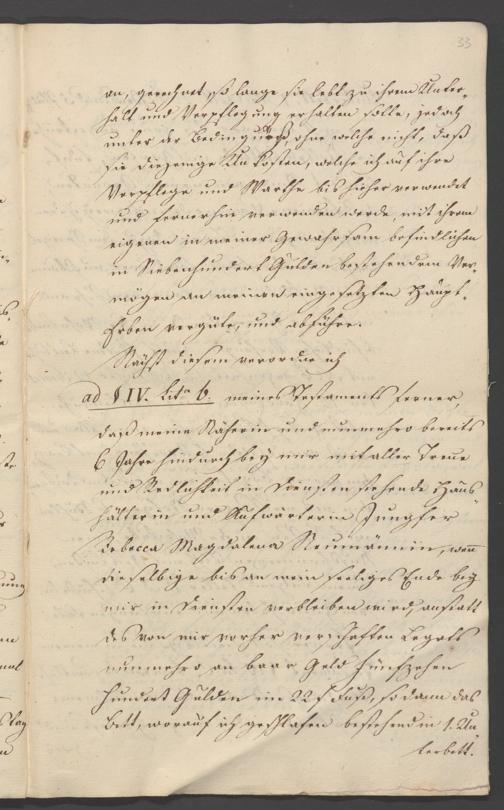 33
an, gerechnet, so lange sie lebt zu ihrem Unter-
halt und Verpflegung erhalten solle, jedoch
unter der Bedingnuß, ohne welche nicht, daß
sie diejenige Unkosten, welche ich auf ihre
Verpflege und Warthe bis hieher verwendet
und fernerhin verwenden werde, mit ihrem
eigenen in meiner Gewahrsam befindlichen
in Siebenhundert Gulden bestehendem Ver-
mögen an meinen eingesetzten Haupt-
Erben vergüte, und abführe.
Nächst diesem verordne ich
ad § IV. Litᵃ b. meines Testaments ferner,
daß meine Näherin und nunmehro bereits
6 Jahre hindurch bey mir mit aller Treue
und Redlichkeit in Diensten stehende Haus-
hälterin und Aufwärterin Jungfer
Rebecca Magdalena Neumännin, wenn
dieselbige bis an mein seeliges Ende bey
mir in Diensten verbleiben wird, anstatt
des von mir vorher verschafften Legats
nunmehro an baar Geld fünfzehen
hundert Gulden im 22 f Fuß, sodann das
Bett, worauf ich geschlafen bestehend in 1. Un-
terbett.